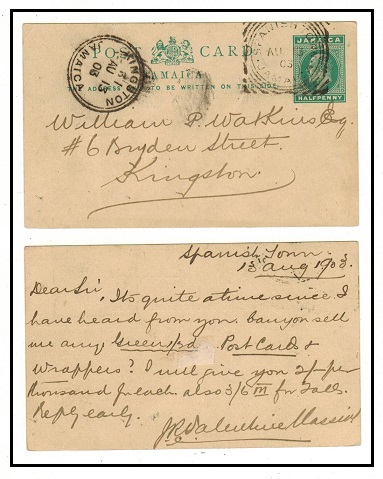 POST CARD
JAMAICA
THE ADDRESS ONLY TO BE WRITTEN ON THIS SIDE
KINGSTON
AU 13
03
JAMAICA
SPANISH TOWN
AU
03
JAMAICA
HALFPENNY
William P. Watkins Esq.
#6 Bryden Street.
Kingston
Spanish Town
13th Aug 1903.
Dear Sir, Its quite a time since I
have heard from you. Can you sell
me any Green ½d Post Cards &
Wrappers? I will give you 2/- per
thousand for each. also 3/6 for
Reply early.
Valentine